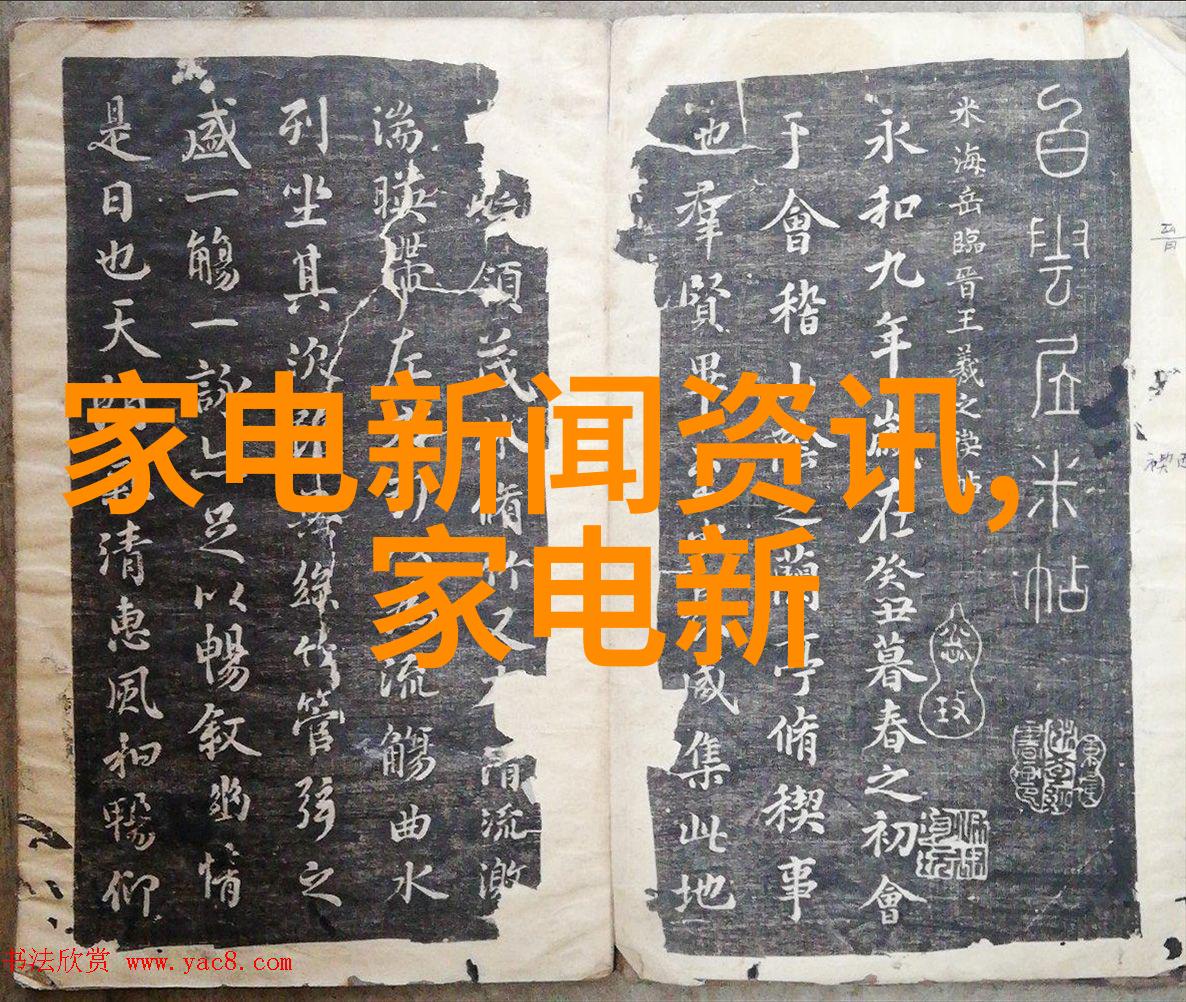 自雲居米帖
米海岳臨晉王羲之禊帖
永和九年歲在癸丑暮春之初會
于會稽山陰之蘭亭脩稧事
也羣賢畢至
咸集此地
領茂林脩竹又
清流激
湍暎帶左右
流觴曲水
列坐其次
絲竹管弦之
盛一觴一詠亦足以暢叙幽情
是日也天
清惠風和暢仰
家电新闻资讯,
家电新
书法欣赏 www.yac8.com